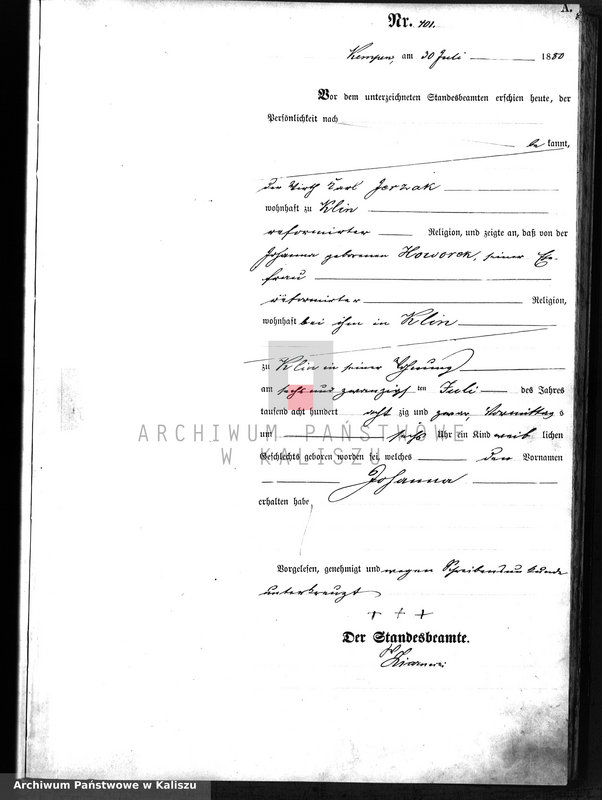 A.
Nr. 101.
Kempen, am 30 Juli 1880
Vor dem unterzeichneten Standesbeamten erschien heute, der
Persönlichkeit nach
be kannt,
der Wirth Karl Jerzak
wohnhaft zu Klin
reformirter Religion, und zeigte an, daß von der
Johanna geborenen Howorek, seiner Ehe-
frau
reformirter Religion,
wohnhaft bei ihm in Klin
zu Klin in seiner Wohnung
am sechs und zwanzigsten Juli des Jahres
tausend acht hundert acht zig und zwar, Vormittag s
um sechs Uhr ein Kind weib lichen
Geschlechts geboren worden sei, welches den Vornamen
Johanna
erhalten habe
Vorgelesen, genehmigt und wegen Schreibensunkunde
unterkreuzt
+ + +
Der Standesbeamte.
ARCHIWUM PAŃSTWOWE
W KALISZU
Archiwum Państwowe w Kaliszu